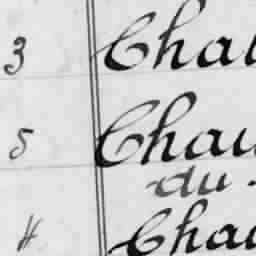 3 Chal
5 Chau
du
4 Chau